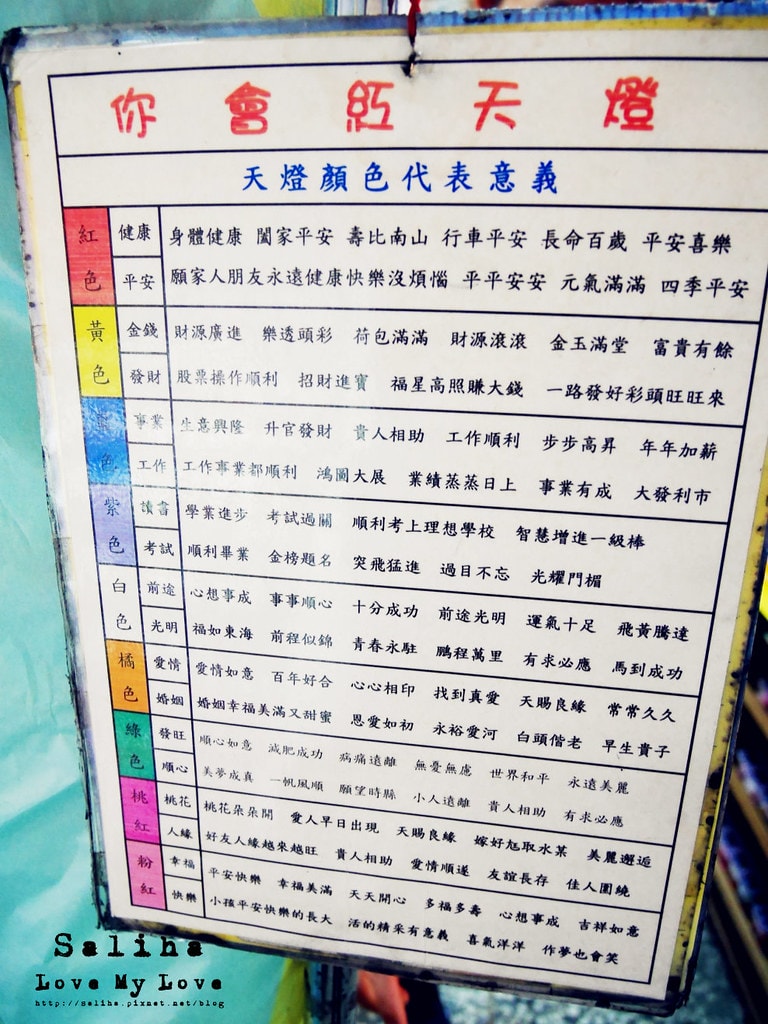 你會紅天燈
天燈顏色代表意義
紅色
健康 身體健康 闔家平安 壽比南山 行車平安 長命百歲 平安喜樂
平安 願家人朋友永遠健康快樂沒煩惱 平平安安 元氣滿滿 四季平安
黃色
金錢 財源廣進 樂透頭彩 荷包滿滿 財源滾滾 金玉滿堂 富貴有餘
發財 股票操作順利 招財進寶 福星高照賺大錢 一路發好彩頭旺旺來
藍色
事業 生意興隆 升官發財 貴人相助 工作順利 步步高昇 年年加薪
工作 工作事業都順利 鴻圖大展 業績蒸蒸日上 事業有成 大發利市
紫色
讀書 學業進步 考試過關 順利考上理想學校 智慧增進一級棒
考試 順利畢業 金榜題名 突飛猛進 過目不忘 光耀門楣
白色
前途 心想事成 事事順心 十分成功 前途光明 運氣十足 飛黃騰達
光明 福如東海 前程似錦 青春永駐 鵬程萬里 有求必應 馬到成功
橘色
愛情 愛情如意 百年好合 心心相印 找到真愛 天賜良緣 常常久久
婚姻 婚姻幸福美滿又甜蜜 恩愛如初 永裕愛河 白頭偕老 早生貴子
綠色
發旺 順心如意 減肥成功 病痛遠離 無憂無慮 世界和平 永遠美麗
順心 美夢成真 一帆風順 願望時縣 小人遠離 貴人相助 有求必應
桃紅
桃花 桃花朵朵開 愛人早日出現 天賜良緣 嫁好尪取水某 美麗邂逅
人緣 好友人緣越來越旺 貴人相助 愛情順遂 友誼長存 佳人圍繞
粉紅
幸福 平安快樂 幸福美滿 天天開心 多福多壽 心想事成 吉祥如意
快樂 小孩平安快樂的長大 活的精采有意義 喜氣洋洋 作夢也會笑
Saliha
Love My Love
http://saliha.pixnet.net/blog